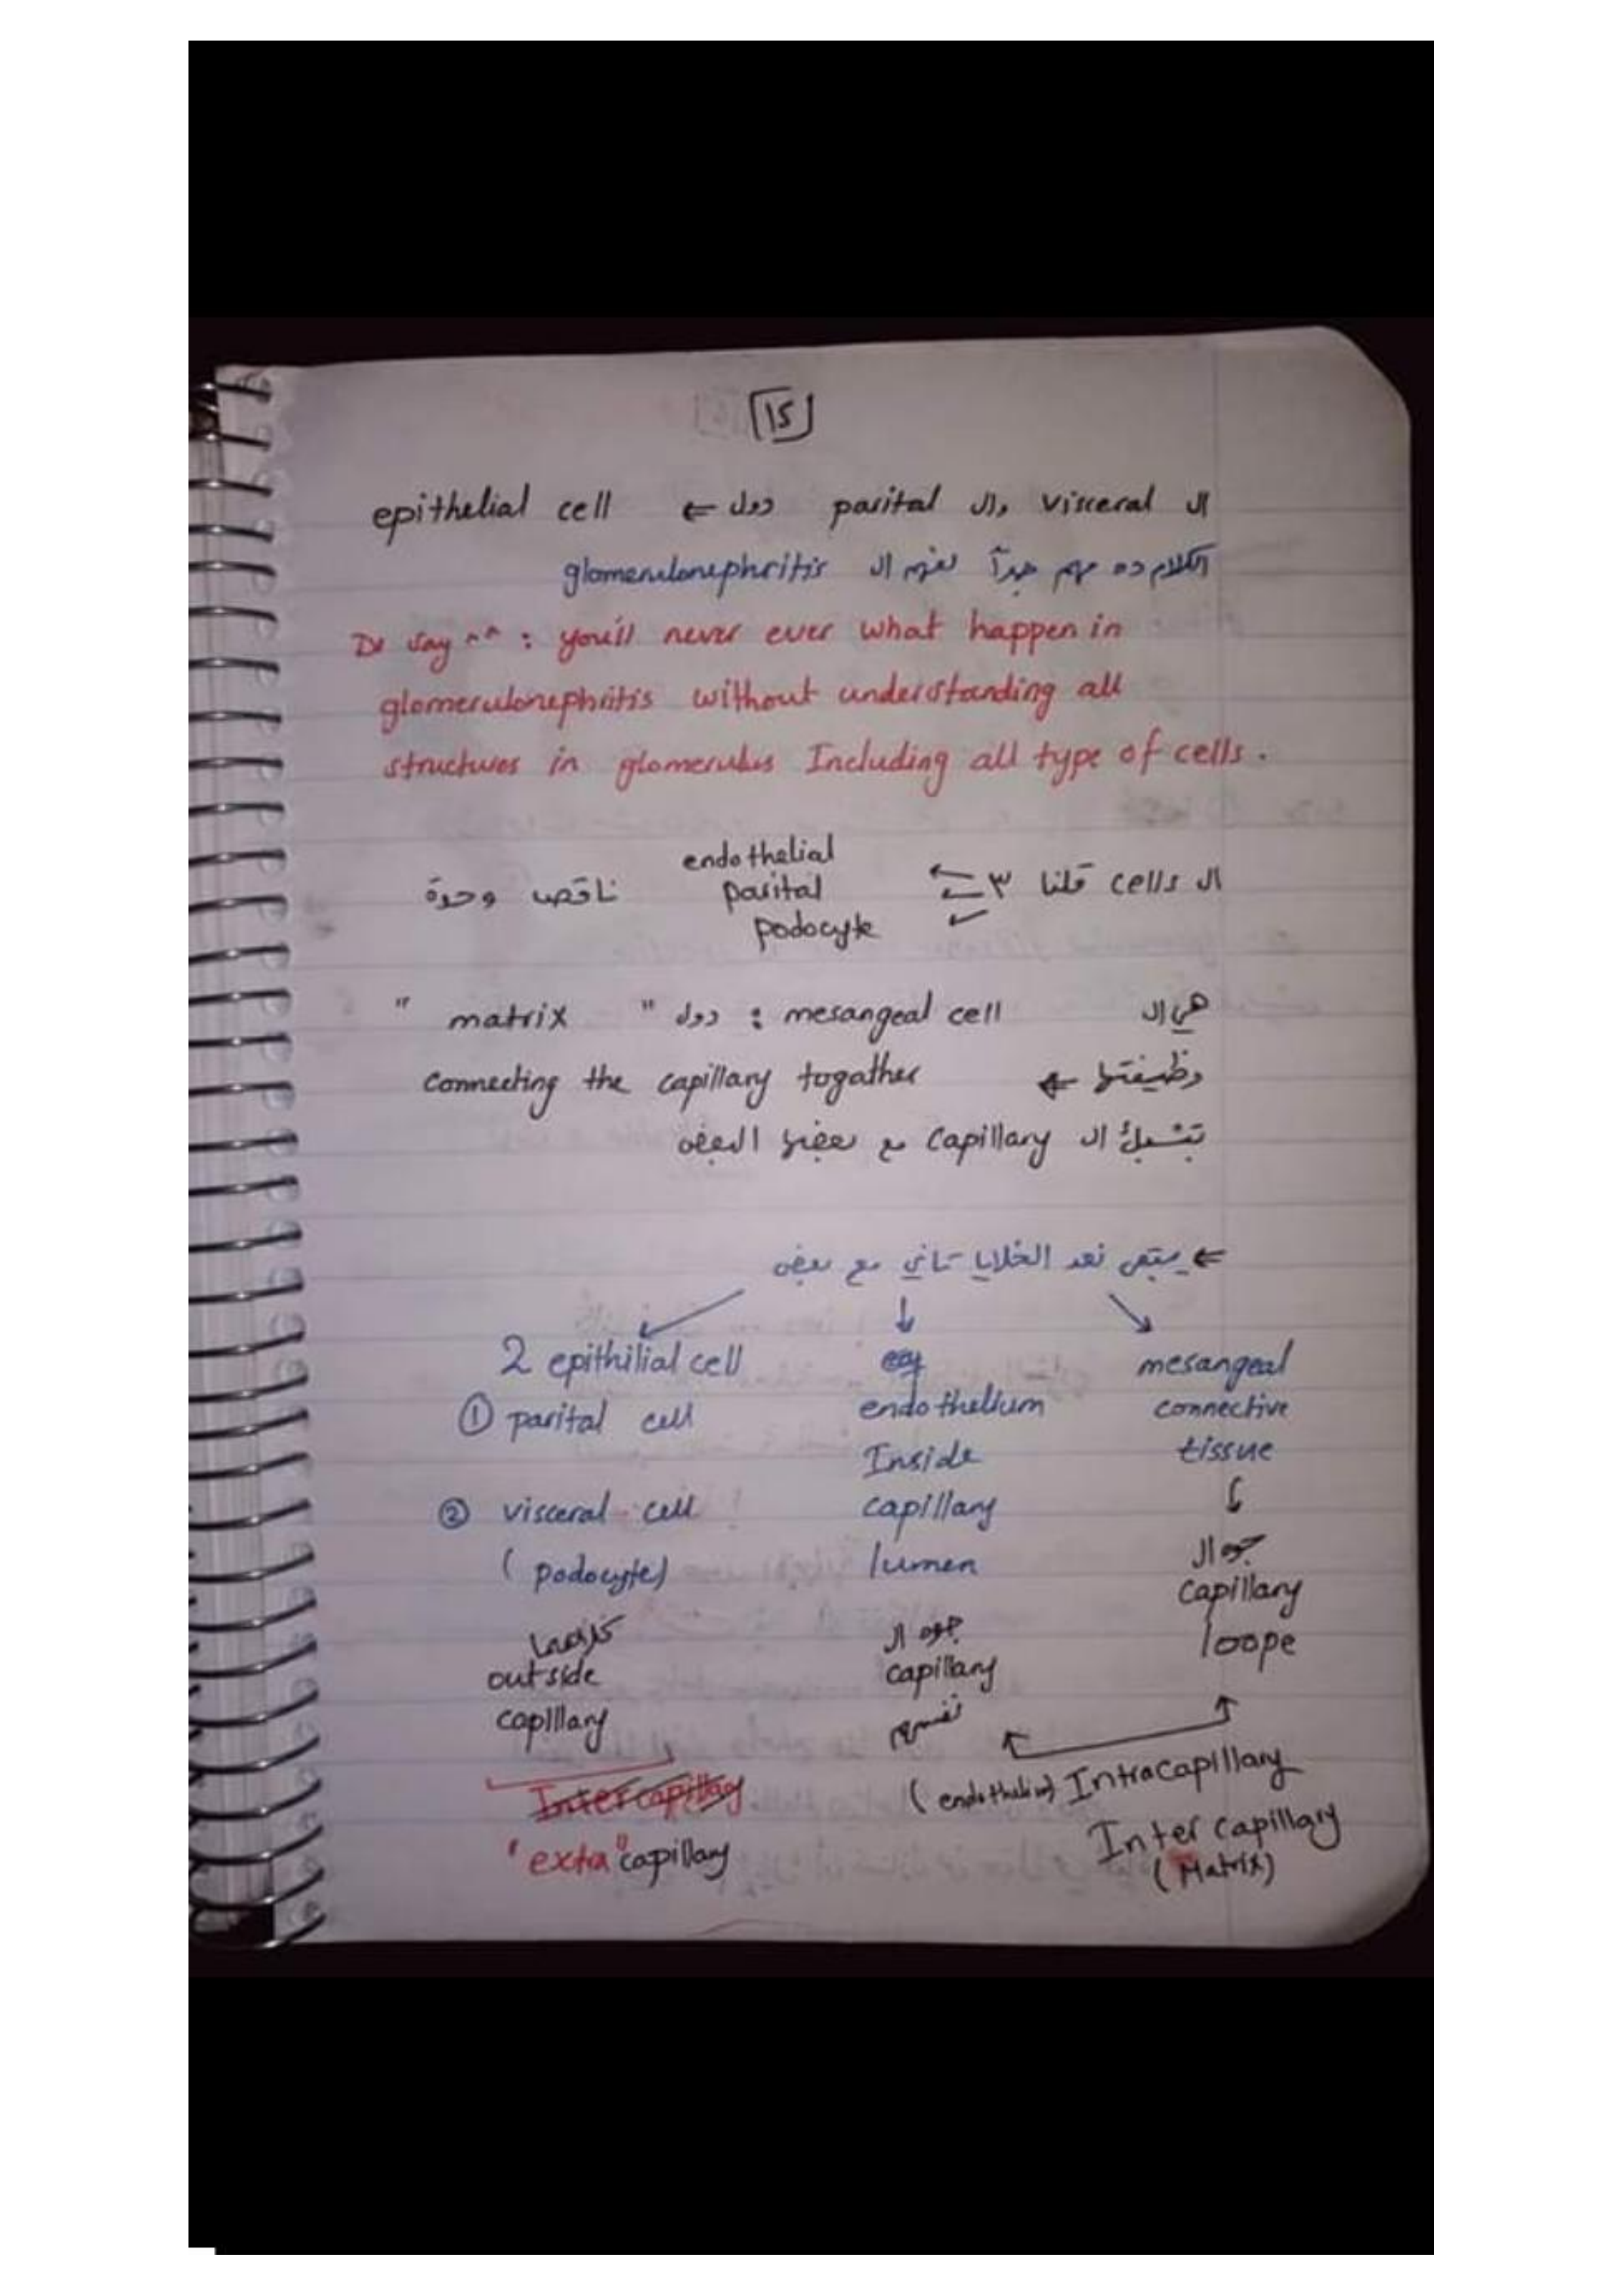 15
ال visceral وال parital دول ⇐ epithelial cell
الكلام ده مهم جداً لفهم ال glomerulonephritis
Dr say ^^ : you'll never ever what happen in
glomerulonephritis without understanding all
structures in glomerulus Including all type of cells.
ال cells قلنا ٣ endothelial ناقص وحدة
parital
podocyte
هي ال mesangeal cell : دول " matrix "
وظيفتها ⇐ connecting the capillary togather
بتشبك ال capillary مع بعضها البعض
⇐ يبقى نعد الخلايا تاني مع بعض
2 epithilial cell
① parital cell
② visceral cell
( podocyte)
outside
capillary
Intercapillay
"extra" capillary
endothelium
Inside
capillary
lumen
جوه ال
capillary
نفسهم
mesangeal
connective
tissue
جوه ال
capillary
loope
(endothelium) Intracapillary
Inter capillary
(Matrix)